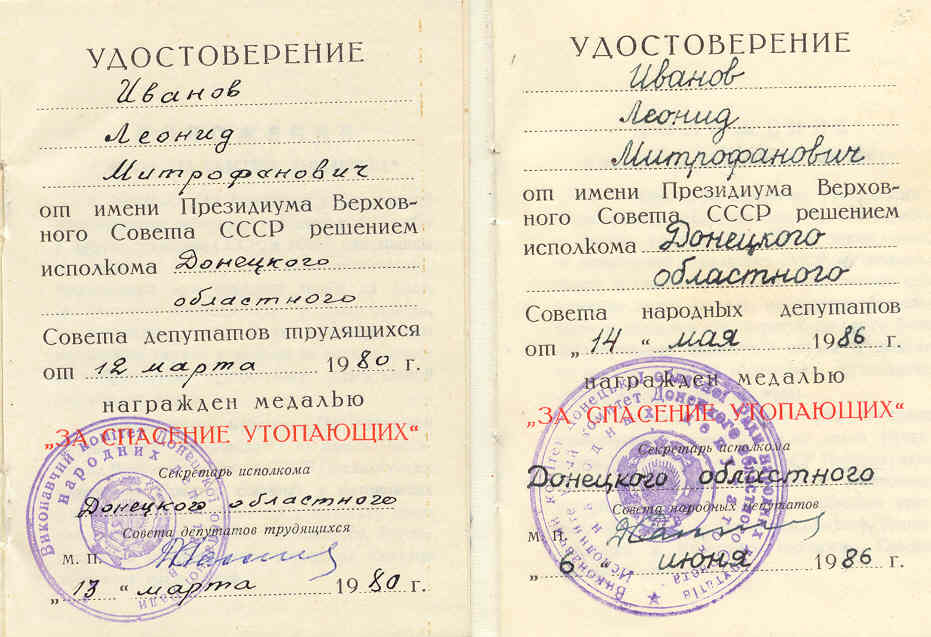 УДОСТОВЕРЕНИЕ
Иванов
Леонид
Митрофанович
от имени Президиума Верхов-
ного Совета СССР решением
исполкома Донецкого
областного
Совета депутатов трудящихся
от „12 марта 1980 г.
награжден медалью
„ЗА СПАСЕНИЕ УТОПАЮЩИХ“
Секретарь исполкома
Донецкого областного
Совета депутатов трудящихся
М. П.
„13“ марта 1980 г.
Виконавчий комітет Донецької
народних
УДОСТОВЕРЕНИЕ
Иванов
Леонид
Митрофанович
от имени Президиума Верхов-
ного Совета СССР решением
исполкома Донецкого
областного
Совета народных депутатов
от „14“ мая 1986 г.
награжден медалью
„ЗА СПАСЕНИЕ УТОПАЮЩИХ“
Секретарь исполкома
Донецкого областного
Совета народных депутатов
М. П.
„6“ июня 1986 г.